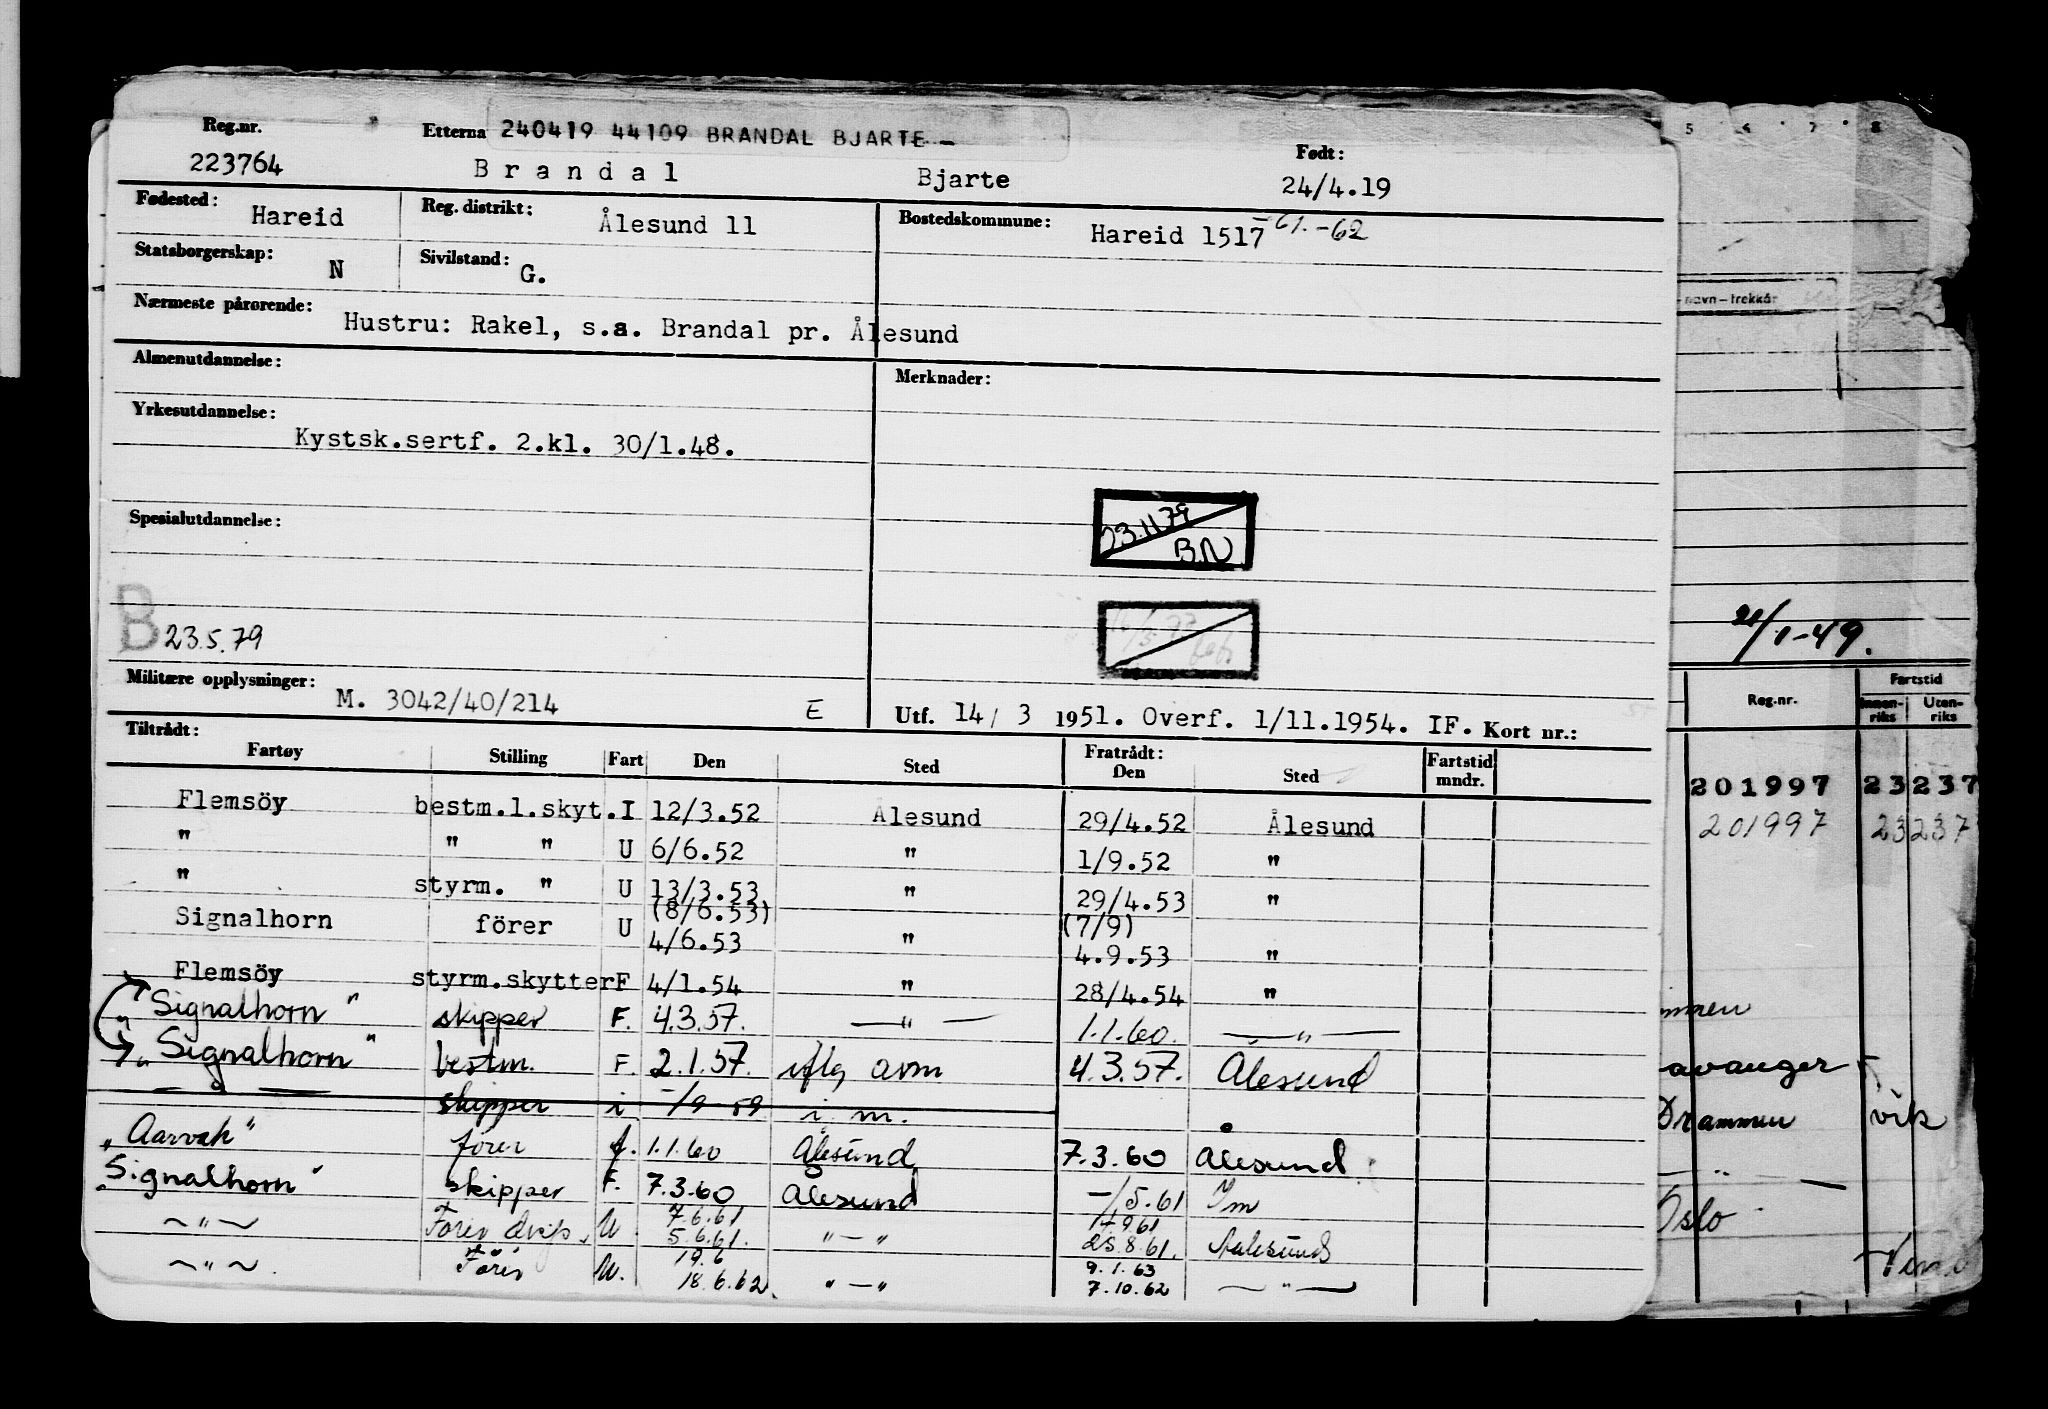 Reg.nr. Etterna 240419 44109 BRANDAL BJARTE - Født:
223764 Brandal Bjarte 24/4.19
Fødested: Hareid Reg. distrikt: Ålesund 11 Bostedskommune: Hareid 1517 - 61. - 62
Statsborgerskap: N Sivilstand: G.
Nærmeste pårørende: Hustru: Rakel, s.a. Brandal pr. Ålesund
Almenutdannelse: Merknader:
Yrkesutdannelse:
Kystsk.sertf. 2.kl. 30/1.48.
23.11.79
B.N
Spesialutdannelse:
B 23.5.79
Militære opplysninger: M. 3042/40/214 E Utf. 14/3 1951. Overf. 1/11.1954. IF. Kort nr.:
Tiltrådt: Fratrådt:
Fartøy Stilling Fart Den Sted Den Sted Fartstid mndr.
Flemsöy bestm.l.skyt. I 12/3.52 Ålesund 29/4.52 Ålesund
" " " U 6/6.52 " 1/9.52 "
" styrm. " U 13/3.53 " 29/4.53 "
(8/6.53) (7/9)
Signalhorn förer U 4/6.53 " 4.9.53 "
Flemsöy styrm.skytter F 4/1.54 " 28/4.54 "
"Signalhorn" skipper F. 4.3.57. — " — 1.1.60. — " —
"Signalhorn" bestm. F. 2.1.57. iflg avm 4.3.57. Ålesund
— " — skipper i -/9-59 i. m.
"Aarvak" fører f. 1.1.60 Ålesund 7.3.60 Ålesund
"Signalhorn" skipper F. 7.3.60 Ålesund -/5.61 Im
7.6.61
— " — Fører U 5.6.61. " — " 25.8.61. Aalesund
19.6 9.1.63
— " — Fører U. 18.6.62. " — " 7.10.62 — " —
5 6 7 8
navn – trekkår
21/1-49.
Reg.nr. Fartstid
Innen-riks Uten-riks
201997 23 237
201997 23 237
mmen
avanger
Drammen vik
— " —
Oslo